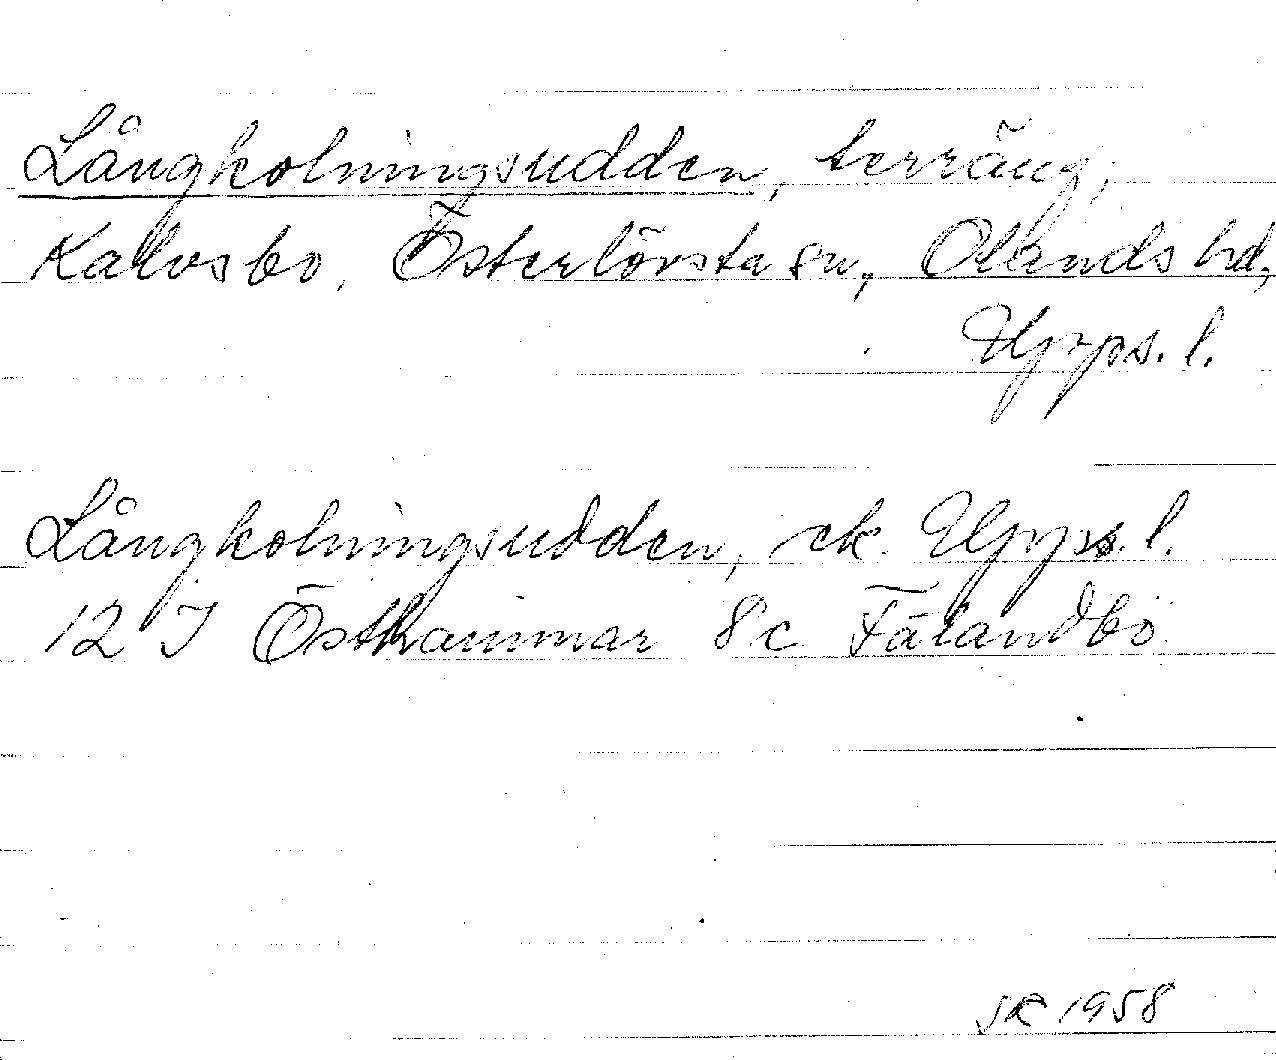 Långkolningsudden, terräng,
Kalvsbo, Österlövsta sn, Olands hd,
Upps. l.
Långkolningsudden, ek. Upps. l.
12 I Östhammar 8c Fälandbö
JR 1958